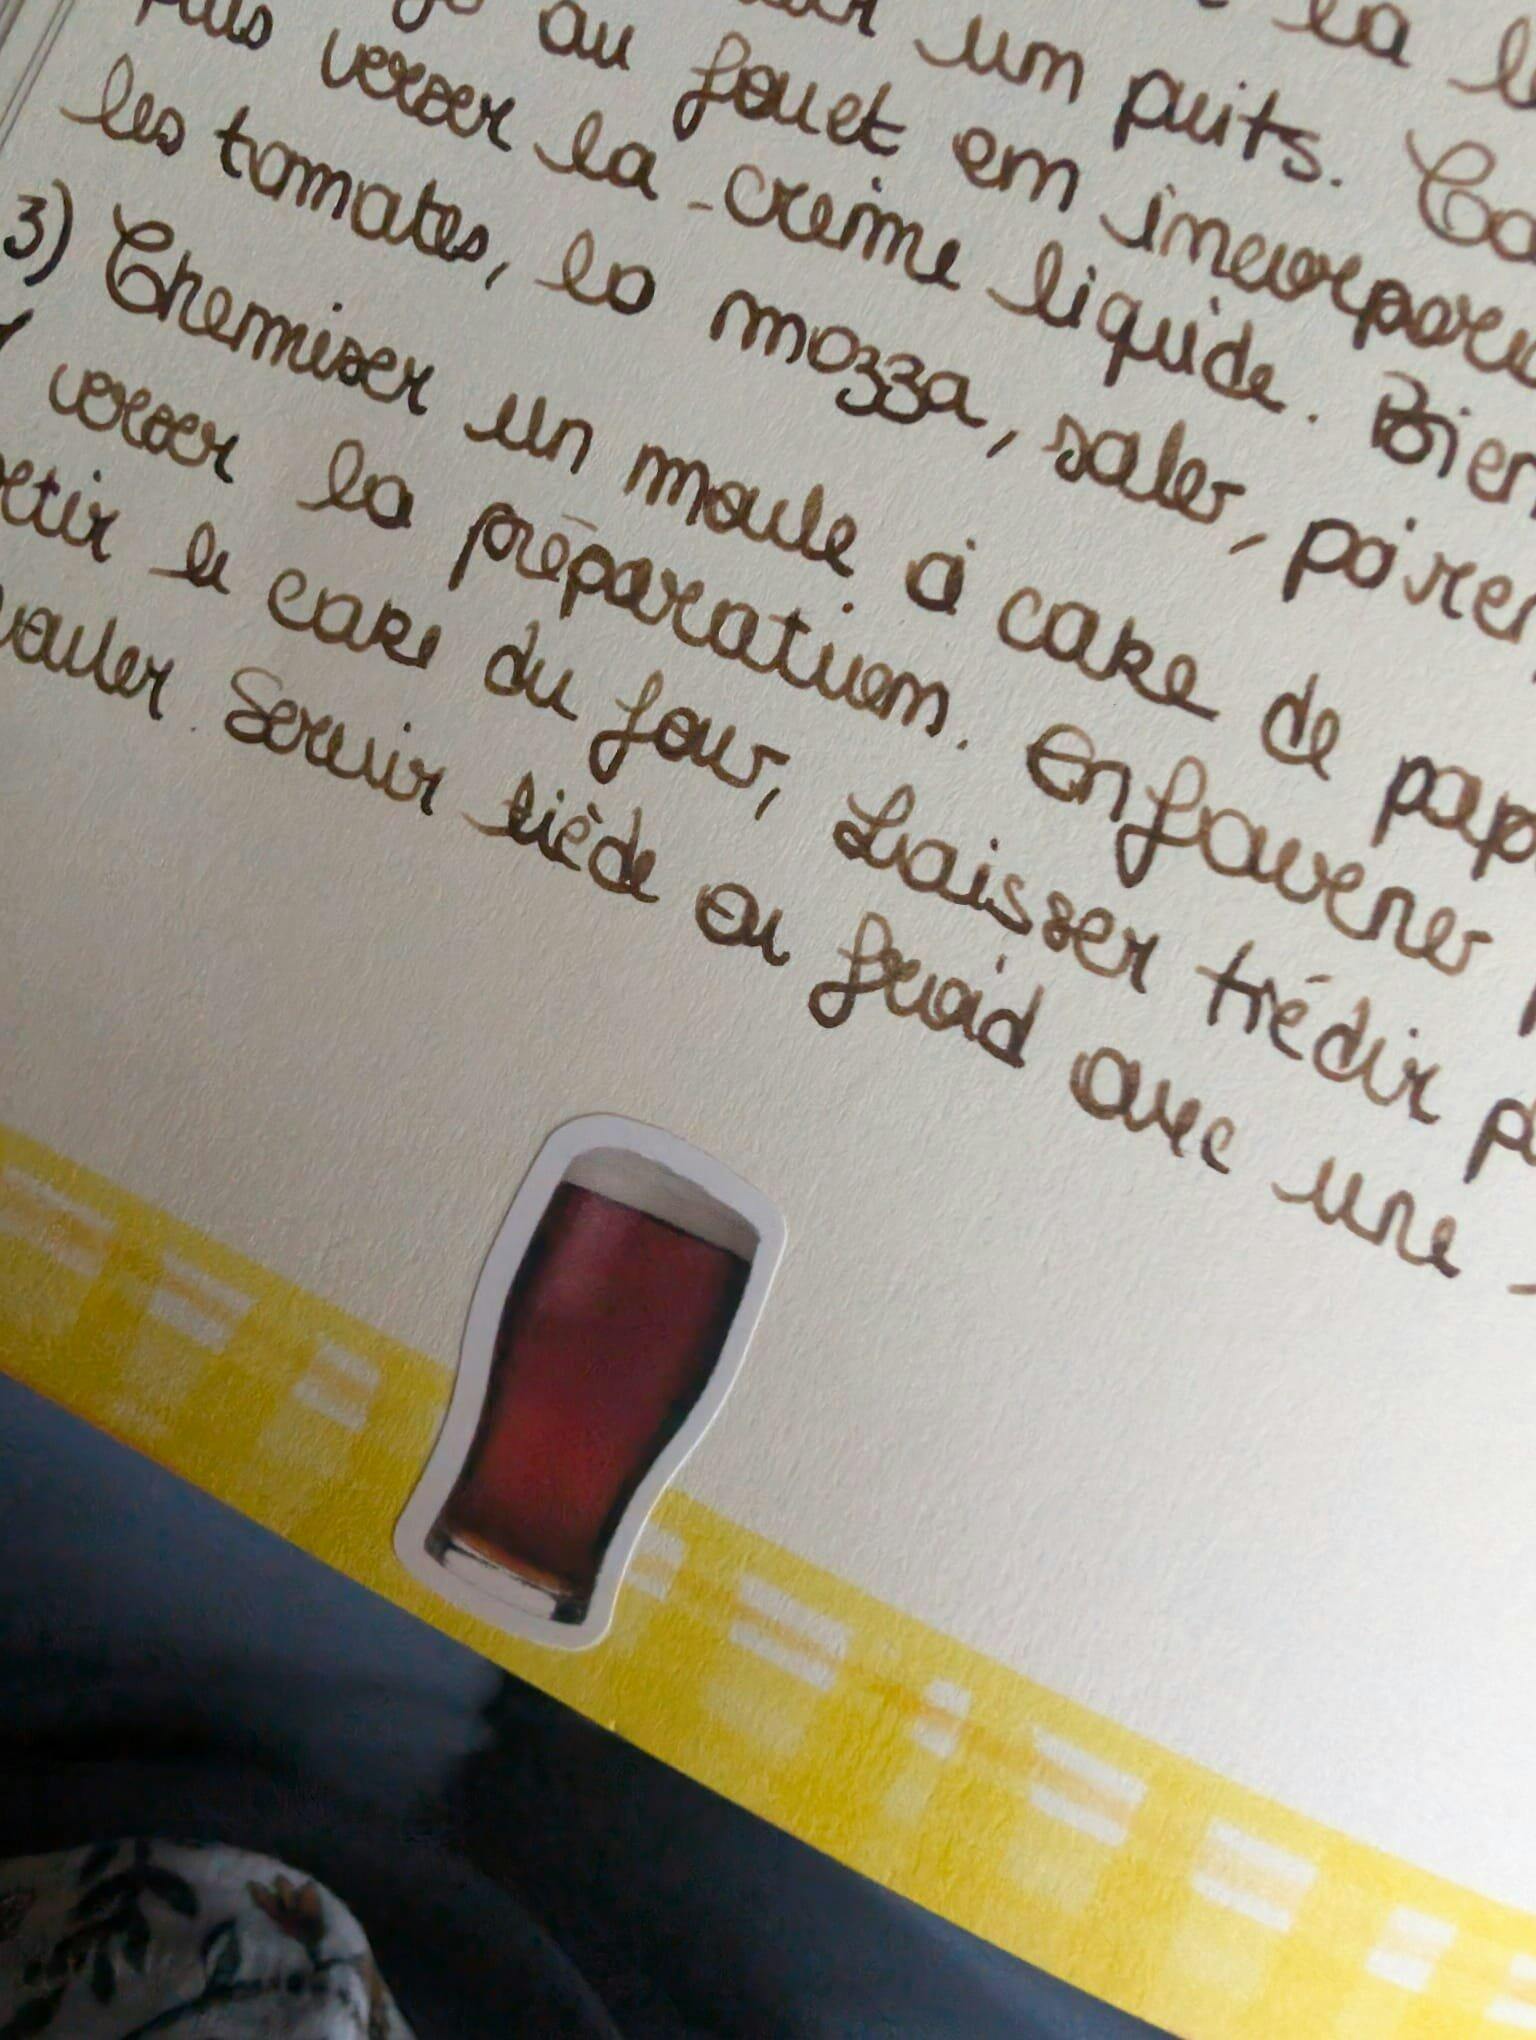 un puits.
au fouet en incorpora
puis verser la crème liquide. Bien
les tomates, la mozza, saler, poivrer
3) Chemiser un moule à cake de pap
verser la préparation. Enfourner
le cake du four, Laisser tiédir
Servir tiède ou froid avec une